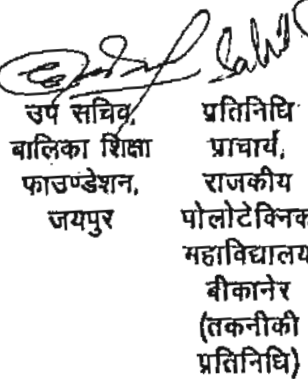 उप सचिव,
बालिका शिक्षा
फाउण्डेशन,
जयपुर
प्रतिनिधि
प्राचार्य,
राजकीय
पोलोटेक्निक
महाविद्यालय
बीकानेर
(तकनीकी
प्रतिनिधि)